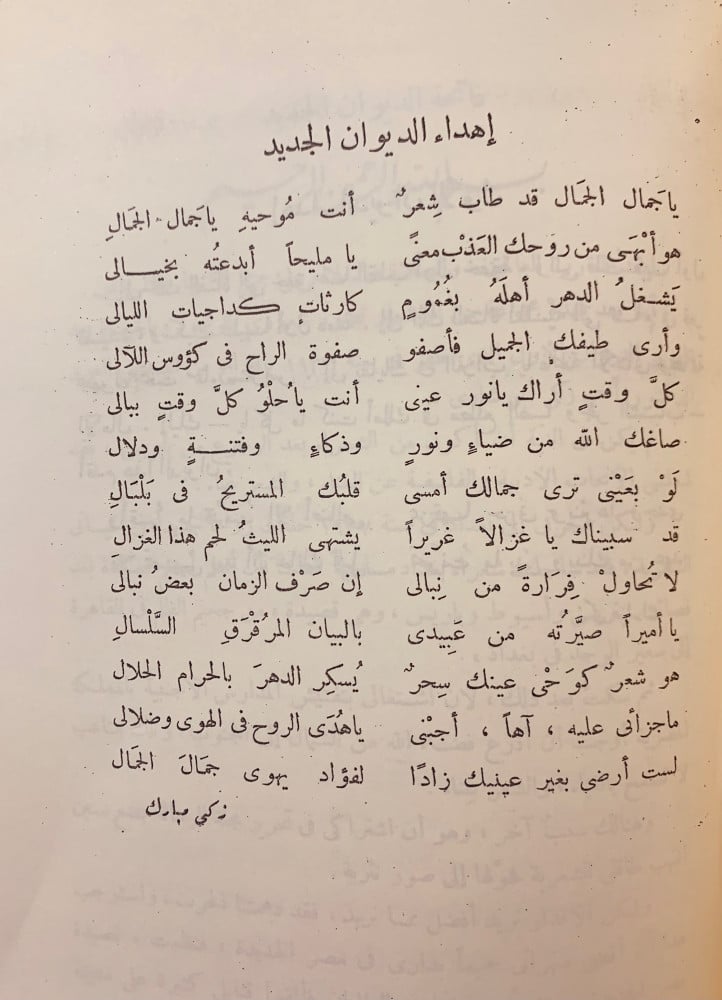 إهداء الديوان الجديد
يا جَمال الجمَال قد طاب شِعرٌ أنت مُوحيهِ يا جَمال الجمَالِ
هو أبْهَى من روحك العَذْب معنًى يا مليحاً أبدعتُه بخيالى
يَشغلُ الدهر أهلَهُ بغُمُومٍ كارثاتٍ كداجيات الليالى
وأرى طيفك الجميل فأصفو صفوة الراح فى كؤوس اللآلى
كلَّ وقتٍ أراك يا نور عينى أنت يا حُلْوُ كلَّ وقتٍ ببالى
صاغك الله من ضياءٍ ونورٍ وذكاءٍ وفتنةٍ ودلال
لَوْ بعَيْنى ترى جمالك أمسى قلبُك المستريحُ فى بَلْبَالِ
قد سبيناك يا غزالاً غريراً يشتهى الليثُ لحم هذا الغزالِ
لا تُحاولْ فِرَارةً من نِبالى إن صَرْف الزمان بعضُ نبالى
يا أميراً صيَّرتُه من عَبِيدى بالبيان المرُقْرَقِ السَّلْسالِ
هو شعرٌ كوَحْى عينك سِحرٌ يُسكِر الدهرَ بالحرام الحلال
ما جزائى عليه ، آهاً ، أجبْنى يا هُدَى الروح فى الهوى وضلالى
لست أرضى بغير عينيك زادًا لفؤاد يهوى جمَالَ الجمَال
زكي مبارك